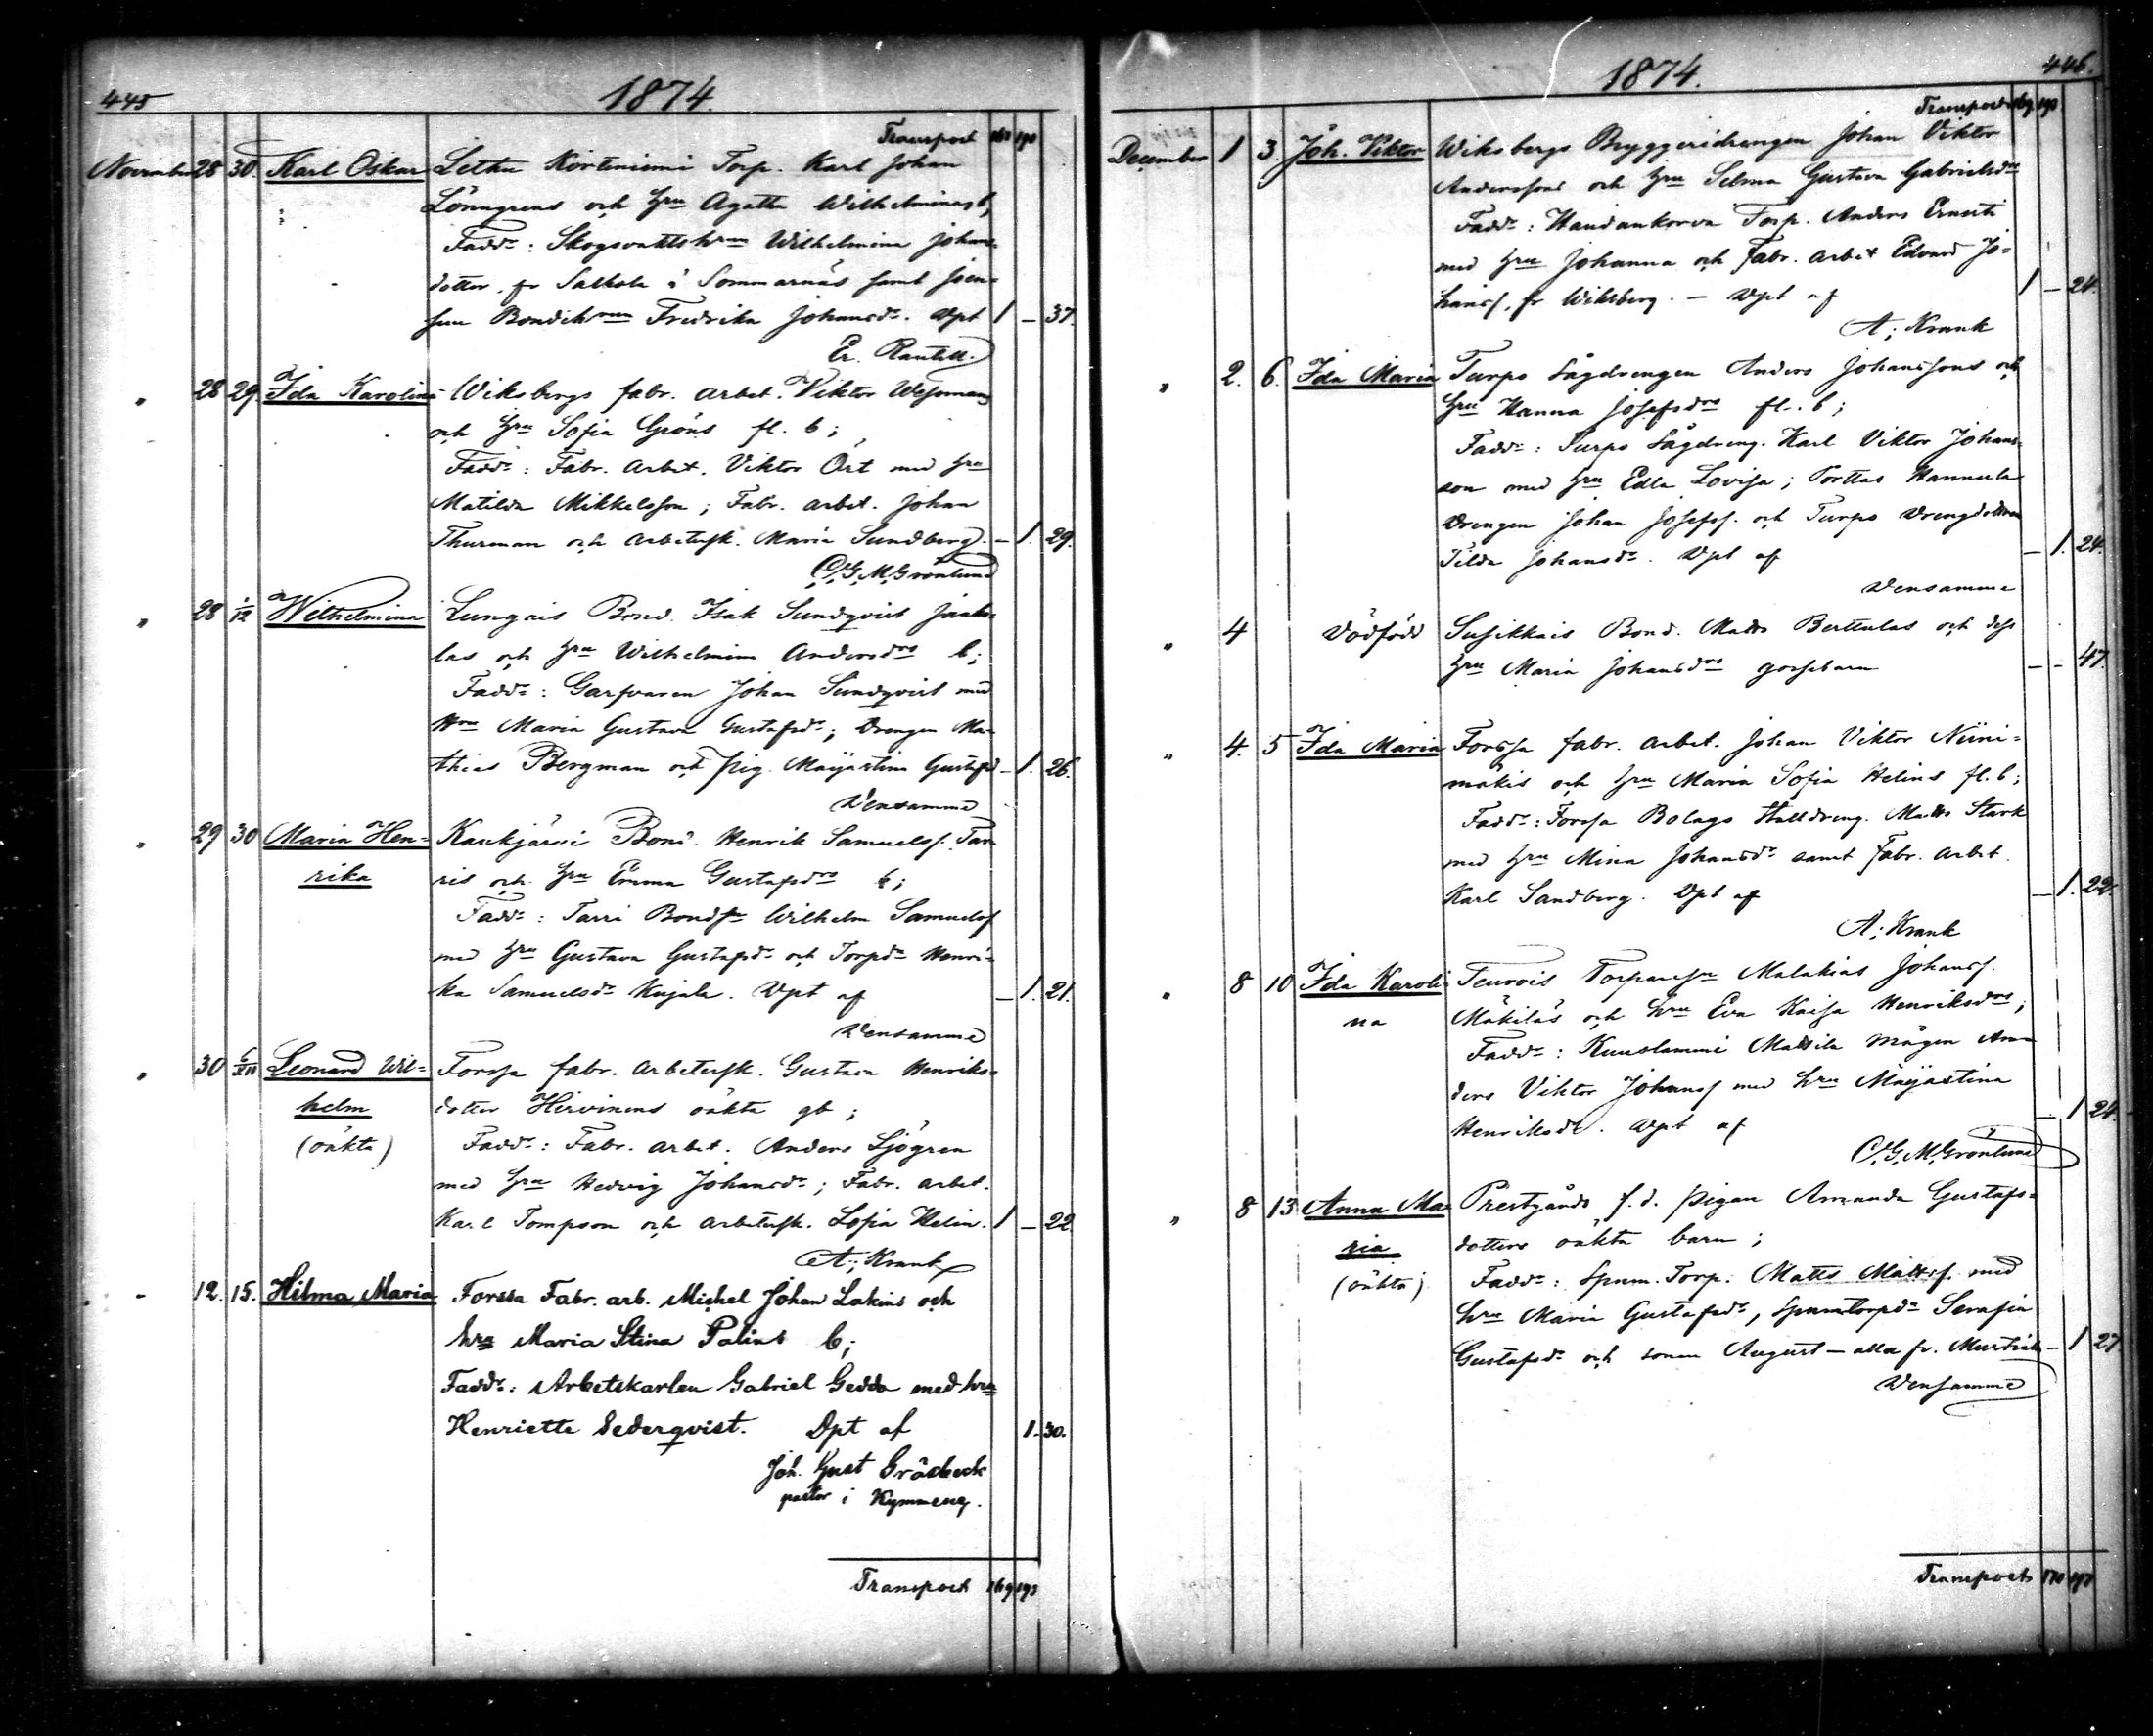 445
1874.
Transport
November 28 30. Karl Oskar Torp. Karl Johan
Lönngrens och Hru Agatha Wilhelminas b;
Faddr: Wilhelmina Johans-
dotter, fr Salkola i Sommarnäs samt
Fredrika Johansdr. Dpt 1 – 37.
Er. Rantell.
" 28 29. Ida Karolina Wiksbergs fabr. arbet. Viktor Wessmans
och Hru Sofia Gröns fl. b;
Faddr: Fabr. arbet. Viktor Ört med Hru
Matilda Mikkelsson; Fabr. arbet. Johan
Thurman och arbetersk. Maria Sundberg. – 1. 29.
C. G. M. Grönlund
" 28 1/12 Wilhelmina Bond. Isak Sundqvist Jaako-
las och Hru Wilhelmina Andersdrs b;
Faddr: Garfvaren Johan Sundqvist med
Hru Maria Gustava Gustafsdr; Drengen Ma-
thias Bergman och pig. Maijastina Gustafsd – 1. 26.
Densamme
" 29 30 Maria Hen- Kaukjärvi Bond. Henrik Samuelss. Tar-
rika ris och Hru Emma Gustafsdrs b;
Faddr: Tarri Bondsn Wilhelm Samuelss
med Hru Gustava Gustafsdr och Torpdr Henri-
ka Samuelsdr Kujala. Dpt af – 1. 21.
Densamme
" 30 6/XII Leonard Wil- Forssa fabr. arbetersk. Gustava Henriks-
helm dotter Hirvinens oäkta gb;
(oäkta) Faddr: Fabr. arbet. Anders Sjögren
med Hru Hedvig Johansdr; Fabr. arbet.
Karl Tompson och arbetersk. Sofia Helin. 1 – 22.
A. Krank
- 12. 15. Hilma Maria Forssa Fabr. arb. Michel Johan Lakins och
Hru Maria Stina Palins b;
Faddr: Arbetskarlen Gabriel Gedda med hru
Henriette Sederqvist. Dpt af 1. 30.
Joh. Gust Gräsbeck
pastor i Kymmene.
Transport 169 193
446.
1874.
Transport 169 193
December 1 3. Joh. Viktor Wiksbergs Bryggeridrengen Johan Viktor
Anderssons och Hru Selma Gustava Gabrielsdrs
Faddr: Haudankorva Torp. Anders Ernsti
med Hru Johanna och Fabr. arbet Edvard Jo-
hanss, fr Wiksberg. – Dpt af 1 – 24.
A. Krank
" 2. 6. Ida Maria Turpo Lågdrengen Anders Johanssons och
Hru Hanna Josefsdrs fl. b;
Faddr: Turpo Lågdreng. Karl Viktor Johans-
son med Hru Edla Lovisa; Torttas Hannula
Drengen Johan Josefss. och Turpo
Tilda Johansdr. Dpt af – 1. 24.
Densamme
" 4 Dödfödd Susikkais Bond. Matts Berttulas och dess
Hru Maria Johansdrs gossebarn – – 47.
" 4. 5 Ida Maria Forssa fabr. arbet. Johan Viktor Niini-
mäkis och Hru Maria Sofia Helins fl. b;
Faddr: Forssa Bolags Stalldreng. Matts Stark
med Hru Mina Johansdr samt Fabr. arbet.
Karl Sandberg. Dpt af – 1. 22.
A. Krank
" 8 10 Ida Karoli- Teurois Torparesn Malakias Johanss.
na Mäkiläs och hru Eva Kaisa Henriksdrs;
Faddr: Kuuslammi Mattila Mågen An-
ders Viktor Johanss med hru Maijastina
Henriksdr. Dpt af – 1 24.
C. G. M. Grönlund
" 8 13 Anna Ma- Prestgårds f.d. pigan Amanda Gustafs-
ria dotters oäkta barn;
(oäkta) Faddr: Spnm. Torp. Matts Mattss. med
hru Maria Gustafsdr, Spnmtorpdr Serafia
Gustafsdr och sonen August – alla fr. – 1 27
Densamme
Transport 170 197